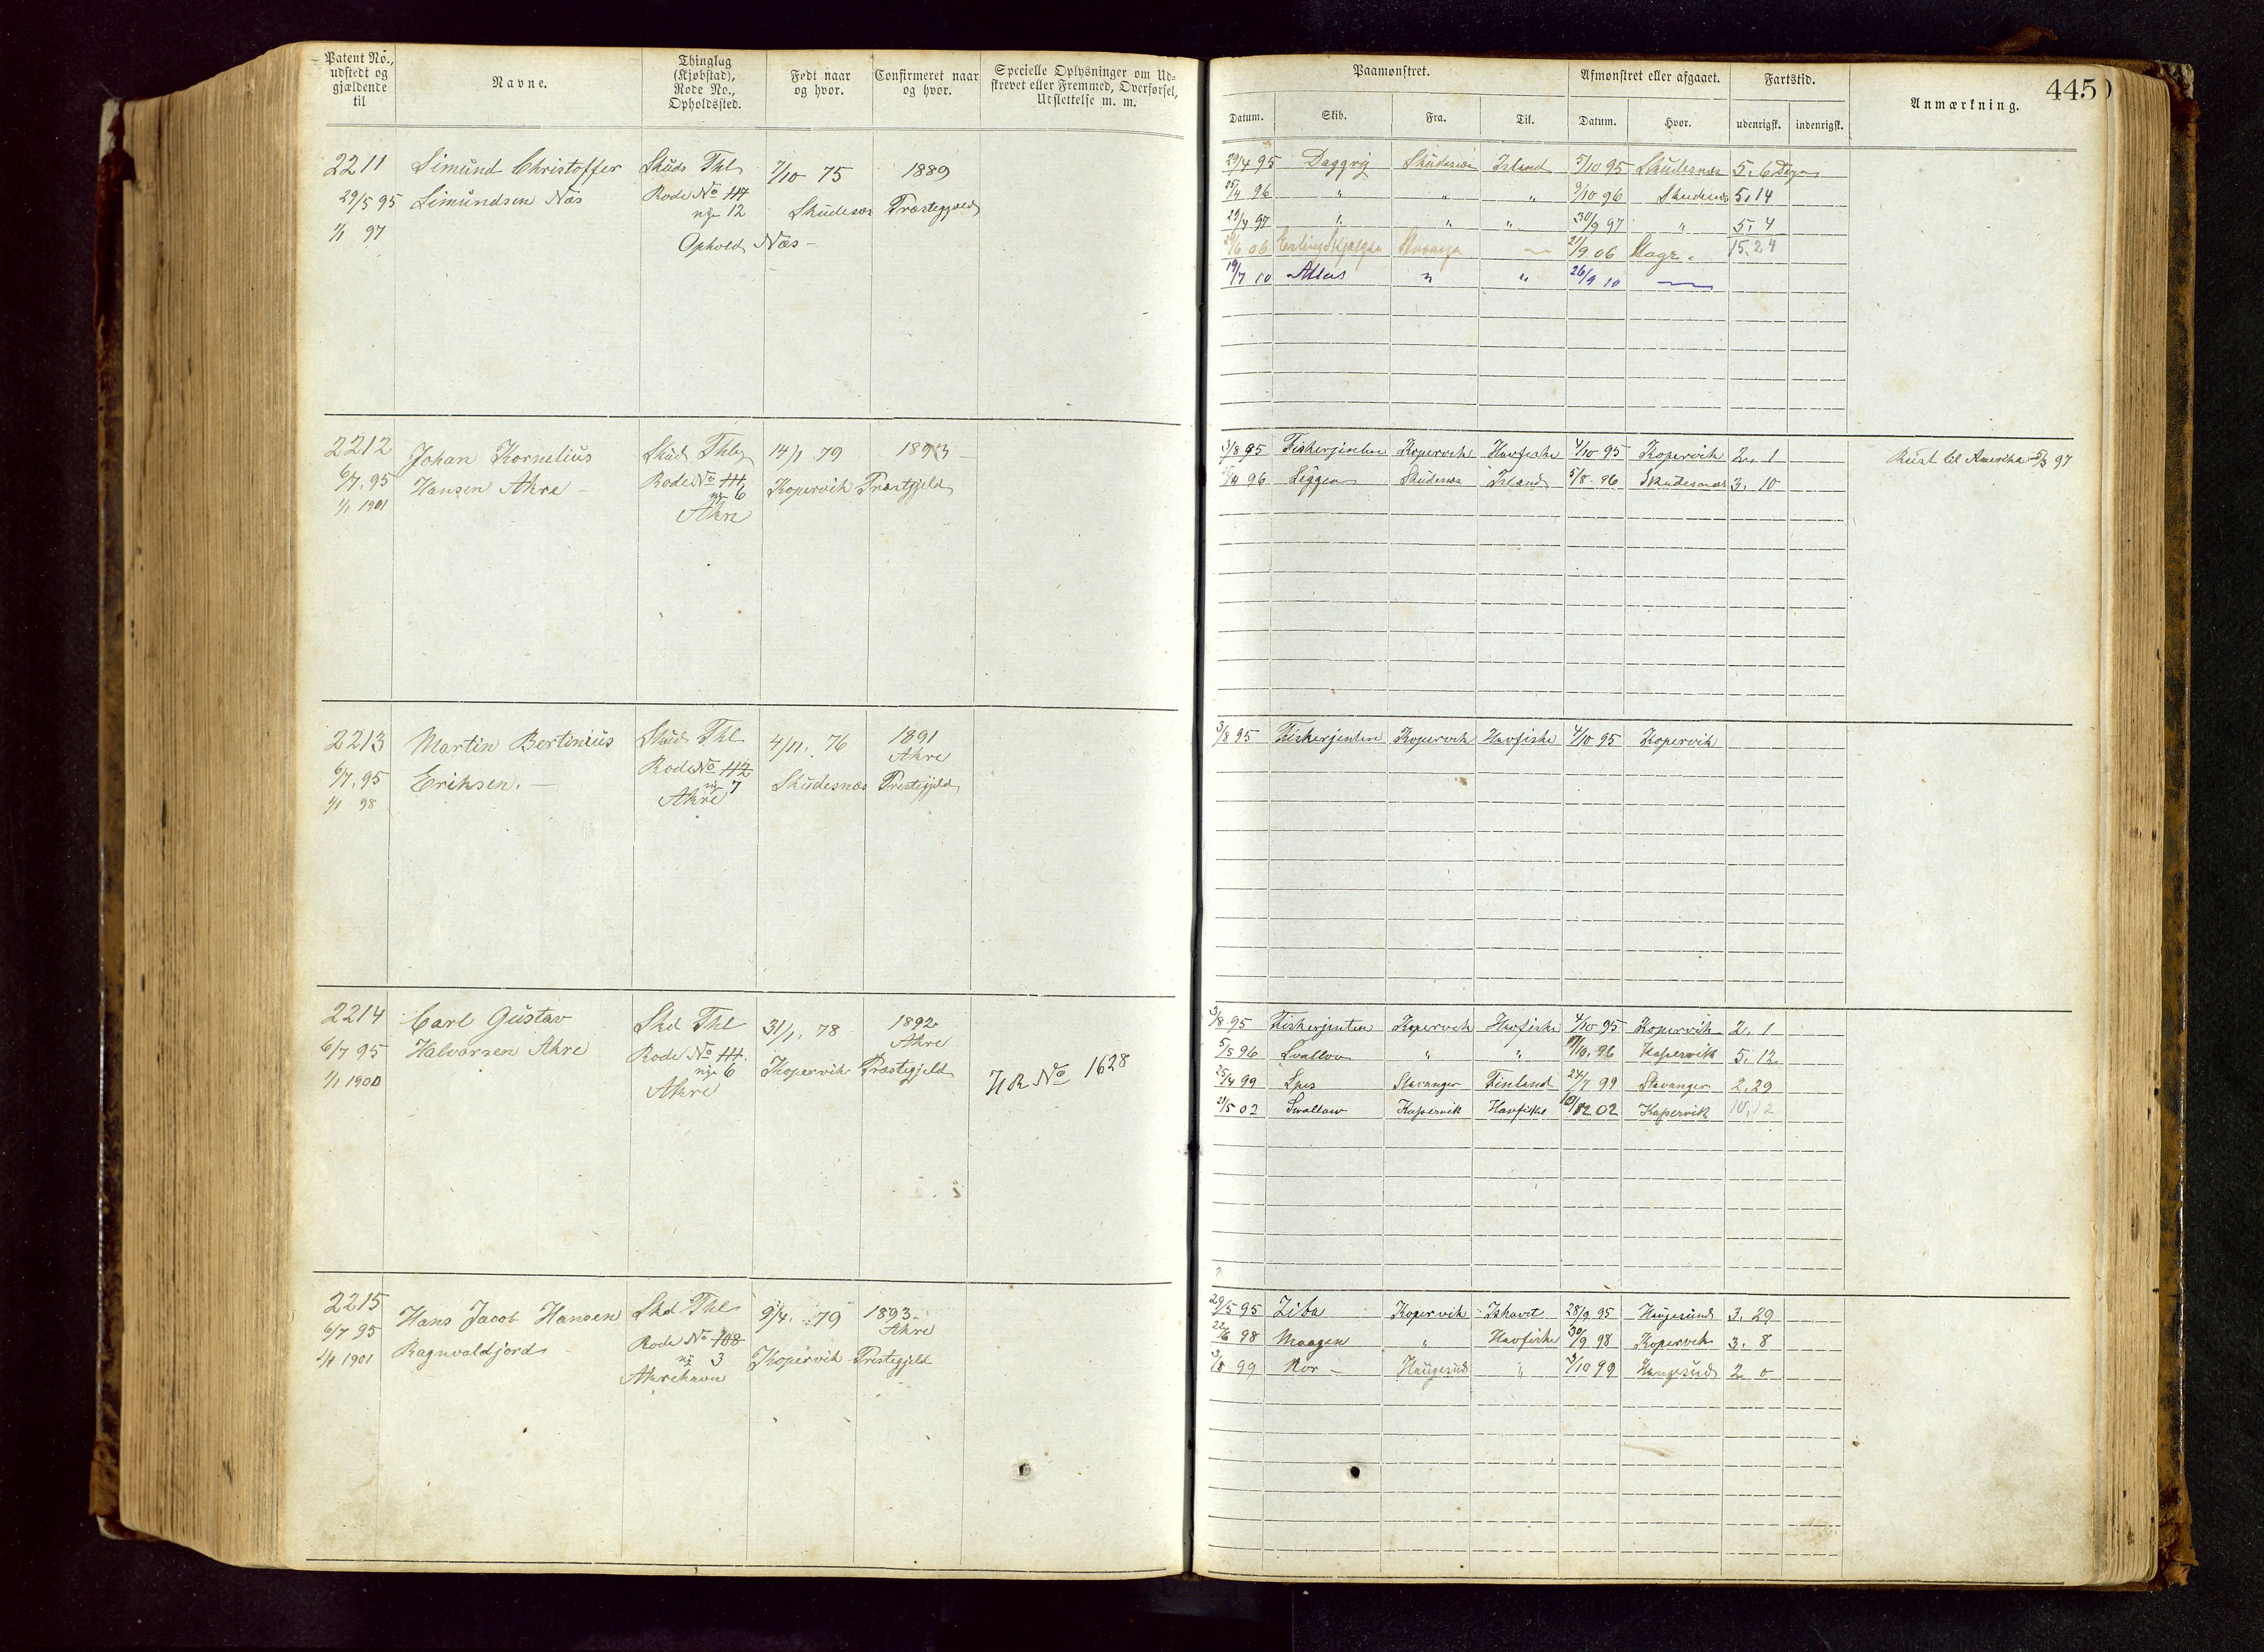 Patent No., udstedt og gjældende til
Navne.
Thinglag (Kjøbstad), Rode No., Opholdssted.
Født naar og hvor.
Confirmeret naar og hvor.
Specielle Oplysninger om Udskrevet eller Fremmed, Overførsel, Udslettelse m. m.
2211 Simund Christoffer Skuds Thl 7/10 75 1889
29/5 95 Simundsen Næs Rode No 117 nye 12 Skudesnæs Præstegjeld
1/1 97 Ophold Næs
2212 Johan Kornelius Skud. Thlg 14/1 79 1893
6/7. 95 Hansen Akre Rode No 111 nye 6 Kopervik Præstgjeld
1/1 1901 Akre
2213 Martin Bertinius Skud Thl 4/11. 76 1891 Akre
6/7. 95 Eriksen. Rode No 112 nye 7 Skudesnæs Prestegjeld
1/1 98 Akre
2214 Carl Gustav Skd Thl 31/1. 78 1892 Akre
6/7 95 Halvorsen Akre Rode No 111. nye 6 Kopervik Præstegjeld H R No 1628
1/1 1900 Akre
2215 Hans Jacob Hansen Skd Thl 9/4. 79 1893. Akre
6/7 95 Ragnvaldjord Rode No 108 ny 3 Kopervik Prestegjeld
1/1 1901 Akrehavn
445
Paamønstret.
Afmønstret eller afgaaet.
Fartstid.
Anmærkning.
Datum. Skib. Fra. Til. Datum. Hvor. udenrigsk. indenrigsk.
29/4 95 Daggry Skudesnæs Island 5/10 95 Skudesnæs 5. 6 Dage
25/4 96 " " " 9/10 96 Skudesnæs 5. 14
29/4 97 " " " 30/9 97 " 5. 4
06 Erling Skjalgsen Stavanger 21/9 06 15. 24
19/7 10 Atlas " " 26/9 10
3/8 95 Fiskerjenten Kopervik Havfiske 4/10 95 Kopervik 2. 1 Reist til Amerika 97
96 Skudesnæs Island 5/8. 96 Skudesnæs 3. 10
3/8 95 Fiskerjenten Kopervik Havfiske 4/10 95 Kopervik
3/8 95 Fiskerjenten Kopervik Havfiske 4/10 95 Kopervik 2. 1
5/5 96 Svallow " " 96 Kopervik 5. 12
25/4 99 Spes Stavanger Finland 24/7 99 Stavanger 2. 29
21/5 02 Swallow Kopervik Havfiske 02 Kopervik 10. 12
29/5 95 Ziba Kopervik Ishavet 28/9 95 Haugesund 3. 29
22/6 98 Maagen " Havfiske 30/9 98 Kopervik 3. 8
3/8 99 Nor Haugesund " 3/10 99 Haugesund 2 0